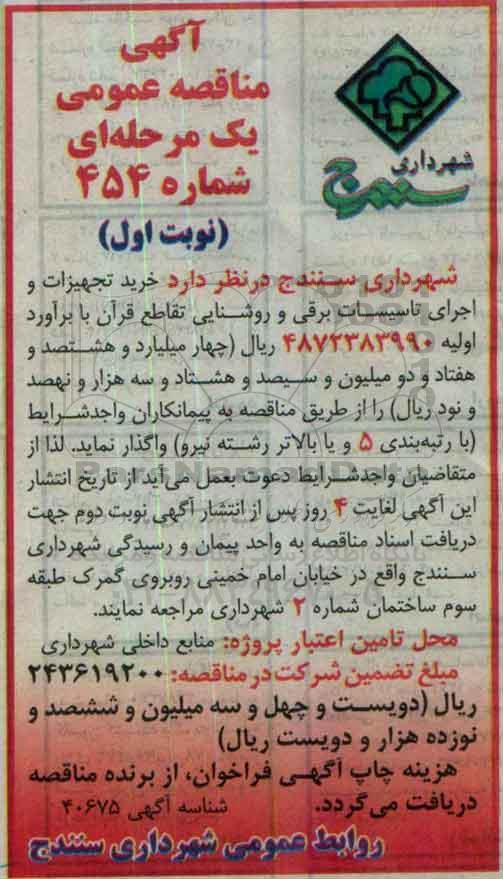 آگهی
مناقصه عمومی
یک مرحله‌ای
شماره ۴۵۴
(نوبت اول)
شهرداری
سنندج
شهرداری سنندج درنظر دارد خرید تجهیزات و
اجرای تاسیسات برقی و روشنایی تقاطع قرآن با برآورد
اولیه ۴۸۷۲۳۸۳۹۹۰ ریال (چهار میلیارد و هشتصد و
هفتاد و دو میلیون و سیصد و هشتاد و سه هزار و نهصد
و نود ریال) را از طریق مناقصه به پیمانکاران واجدشرایط
(با رتبه‌بندی ۵ و یا بالاتر رشته نیرو) واگذار نماید. لذا از
متقاضیان واجدشرایط دعوت بعمل می‌آید از تاریخ انتشار
این آگهی لغایت ۴ روز پس از انتشار آگهی نوبت دوم جهت
دریافت اسناد مناقصه به واحد پیمان و رسیدگی شهرداری
سنندج واقع در خیابان امام خمینی روبروی گمرک طبقه
سوم ساختمان شماره ۲ شهرداری مراجعه نمایند.
محل تامین اعتبار پروژه: منابع داخلی شهرداری
مبلغ تضمین شرکت در مناقصه: ۲۴۳۶۱۹۲۰۰
ریال (دویست و چهل و سه میلیون و ششصد و
نوزده هزار و دویست ریال)
هزینه چاپ آگهی فراخوان، از برنده مناقصه
دریافت می‌گردد. شناسه آگهی ۴۰۶۷۵
روابط عمومی شهرداری سنندج